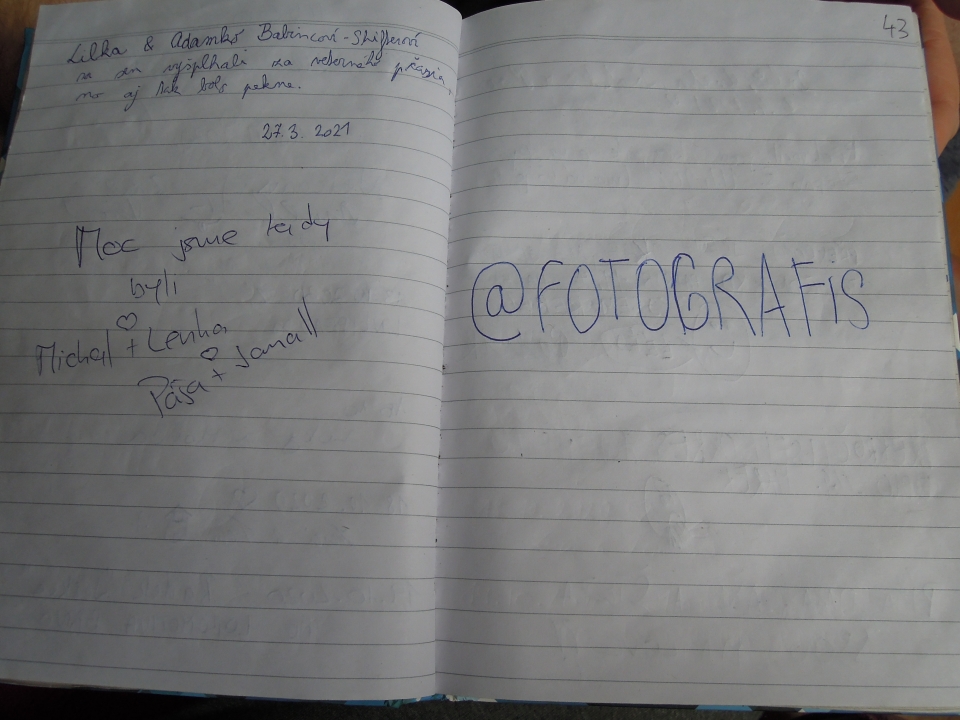 Lilka & Adamko Babincoví-
sa sem vyšplhali za veterného počasia,
no aj tak bolo pekne.
27.3. 2021
Moc jsme tady
byli
Michal + Lenka
Pája + Jana
43
@FOTOGRAFIS